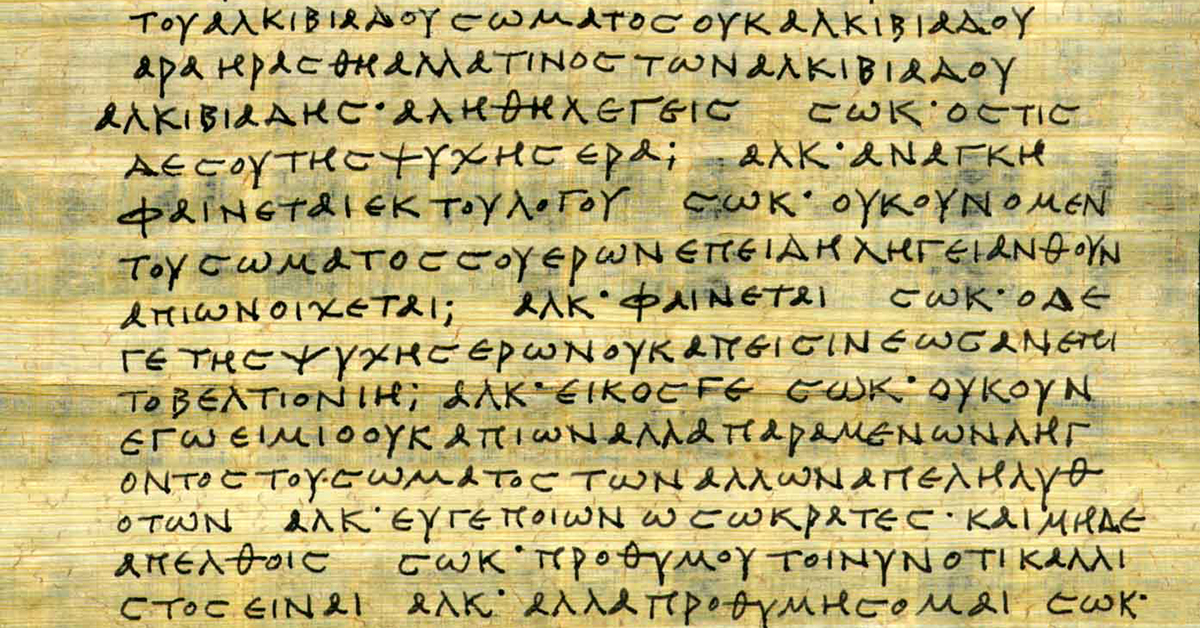 ΤΟΥΑΛΚΙΒΙΑΔΟΥϹΩΜΑΤΟϹΟΥΚΑΛΚΙΒΙΑΔΟΥ
ΑΡΑΗΡΑϹΘΗΑΛΛΑΤΙΝΟϹΤΩΝΑΛΚΙΒΙΑΔΟΥ
ΑΛΚΙΒΙΑΔΗϹ·ΑΛΗΘΗΛΕΓΕΙϹ ϹΩΚ·ΟϹΤΙϹ
ΔΕϹΟΥΤΗϹΨΥΧΗϹΕΡΑ; ΑΛΚ·ΑΝΑΓΚΗ
ΦΑΙΝΕΤΑΙΕΚΤΟΥΛΟΓΟΥ ϹΩΚ·ΟΥΚΟΥΝΟΜΕΝ
ΤΟΥϹΩΜΑΤΟϹϹΟΥΕΡΩΝΕΠΕΙΔΗΛΗΓΕΙΑΝΘΟΥΝ
ΑΠΙΩΝΟΙΧΕΤΑΙ; ΑΛΚ·ΦΑΙΝΕΤΑΙ ϹΩΚ·ΟΔΕ
ΓΕΤΗϹΨΥΧΗϹΕΡΩΝΟΥΚΑΠΕΙϹΙΝΕΩϹΑΝΕΠΙ
ΤΟΒΕΛΤΙΟΝΙΗ; ΑΛΚ·ΕΙΚΟϹΓΕ ϹΩΚ·ΟΥΚΟΥΝ
ΕΓΩΕΙΜΙΟΟΥΚΑΠΙΩΝΑΛΛΑΠΑΡΑΜΕΝΩΝΛΗΓ
ΟΝΤΟϹΤΟΥϹΩΜΑΤΟϹΤΩΝΑΛΛΩΝΑΠΕΛΗΛΥΘ
ΟΤΩΝ ΑΛΚ·ΕΥΓΕΠΟΙΩΝΩϹΩΚΡΑΤΕϹ·ΚΑΙΜΗΔΕ
ΑΠΕΛΘΟΙϹ ϹΩΚ·ΠΡΟΘΥΜΟΥΤΟΙΝΥΝΟΤΙΚΑΛΛΙ
ϹΤΟϹΕΙΝΑΙ ΑΛΚ·ΑΛΛΑΠΡΟΘΥΜΗϹΟΜΑΙ ϹΩΚ·